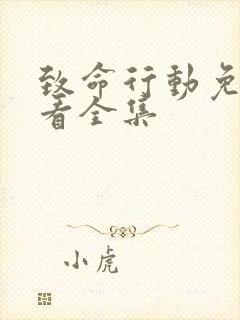 致命行動免
看全集
小虎